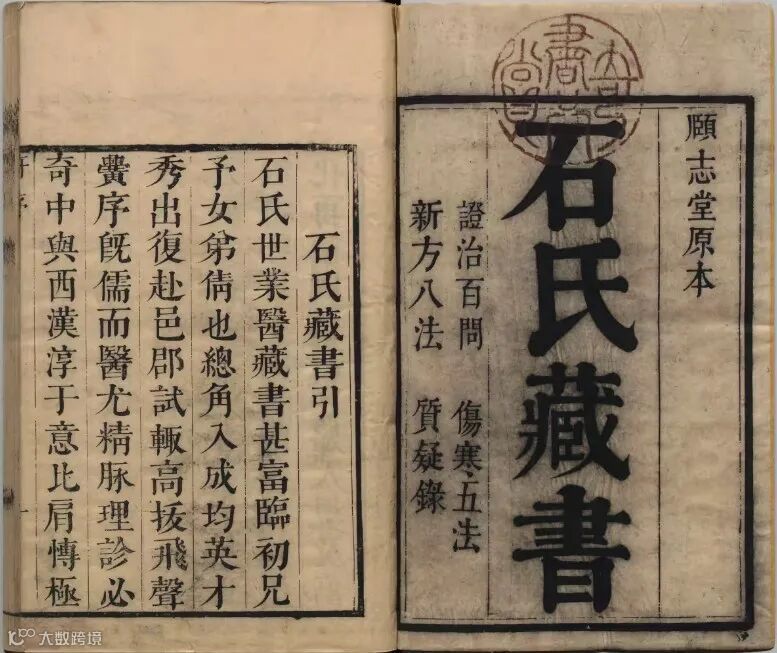 頤志堂原本
石氏藏書
證治百問 傷寒五法
新方八法 質疑錄
石氏藏書引
石氏世業醫藏書甚富臨初兄
予女弟倩也總角入成均英才
秀出復赴邑郡試輒高拔飛聲
黌序既儒而醫尤精脉理診必
奇中與西漢淳于意比肩慱極
大数跨境